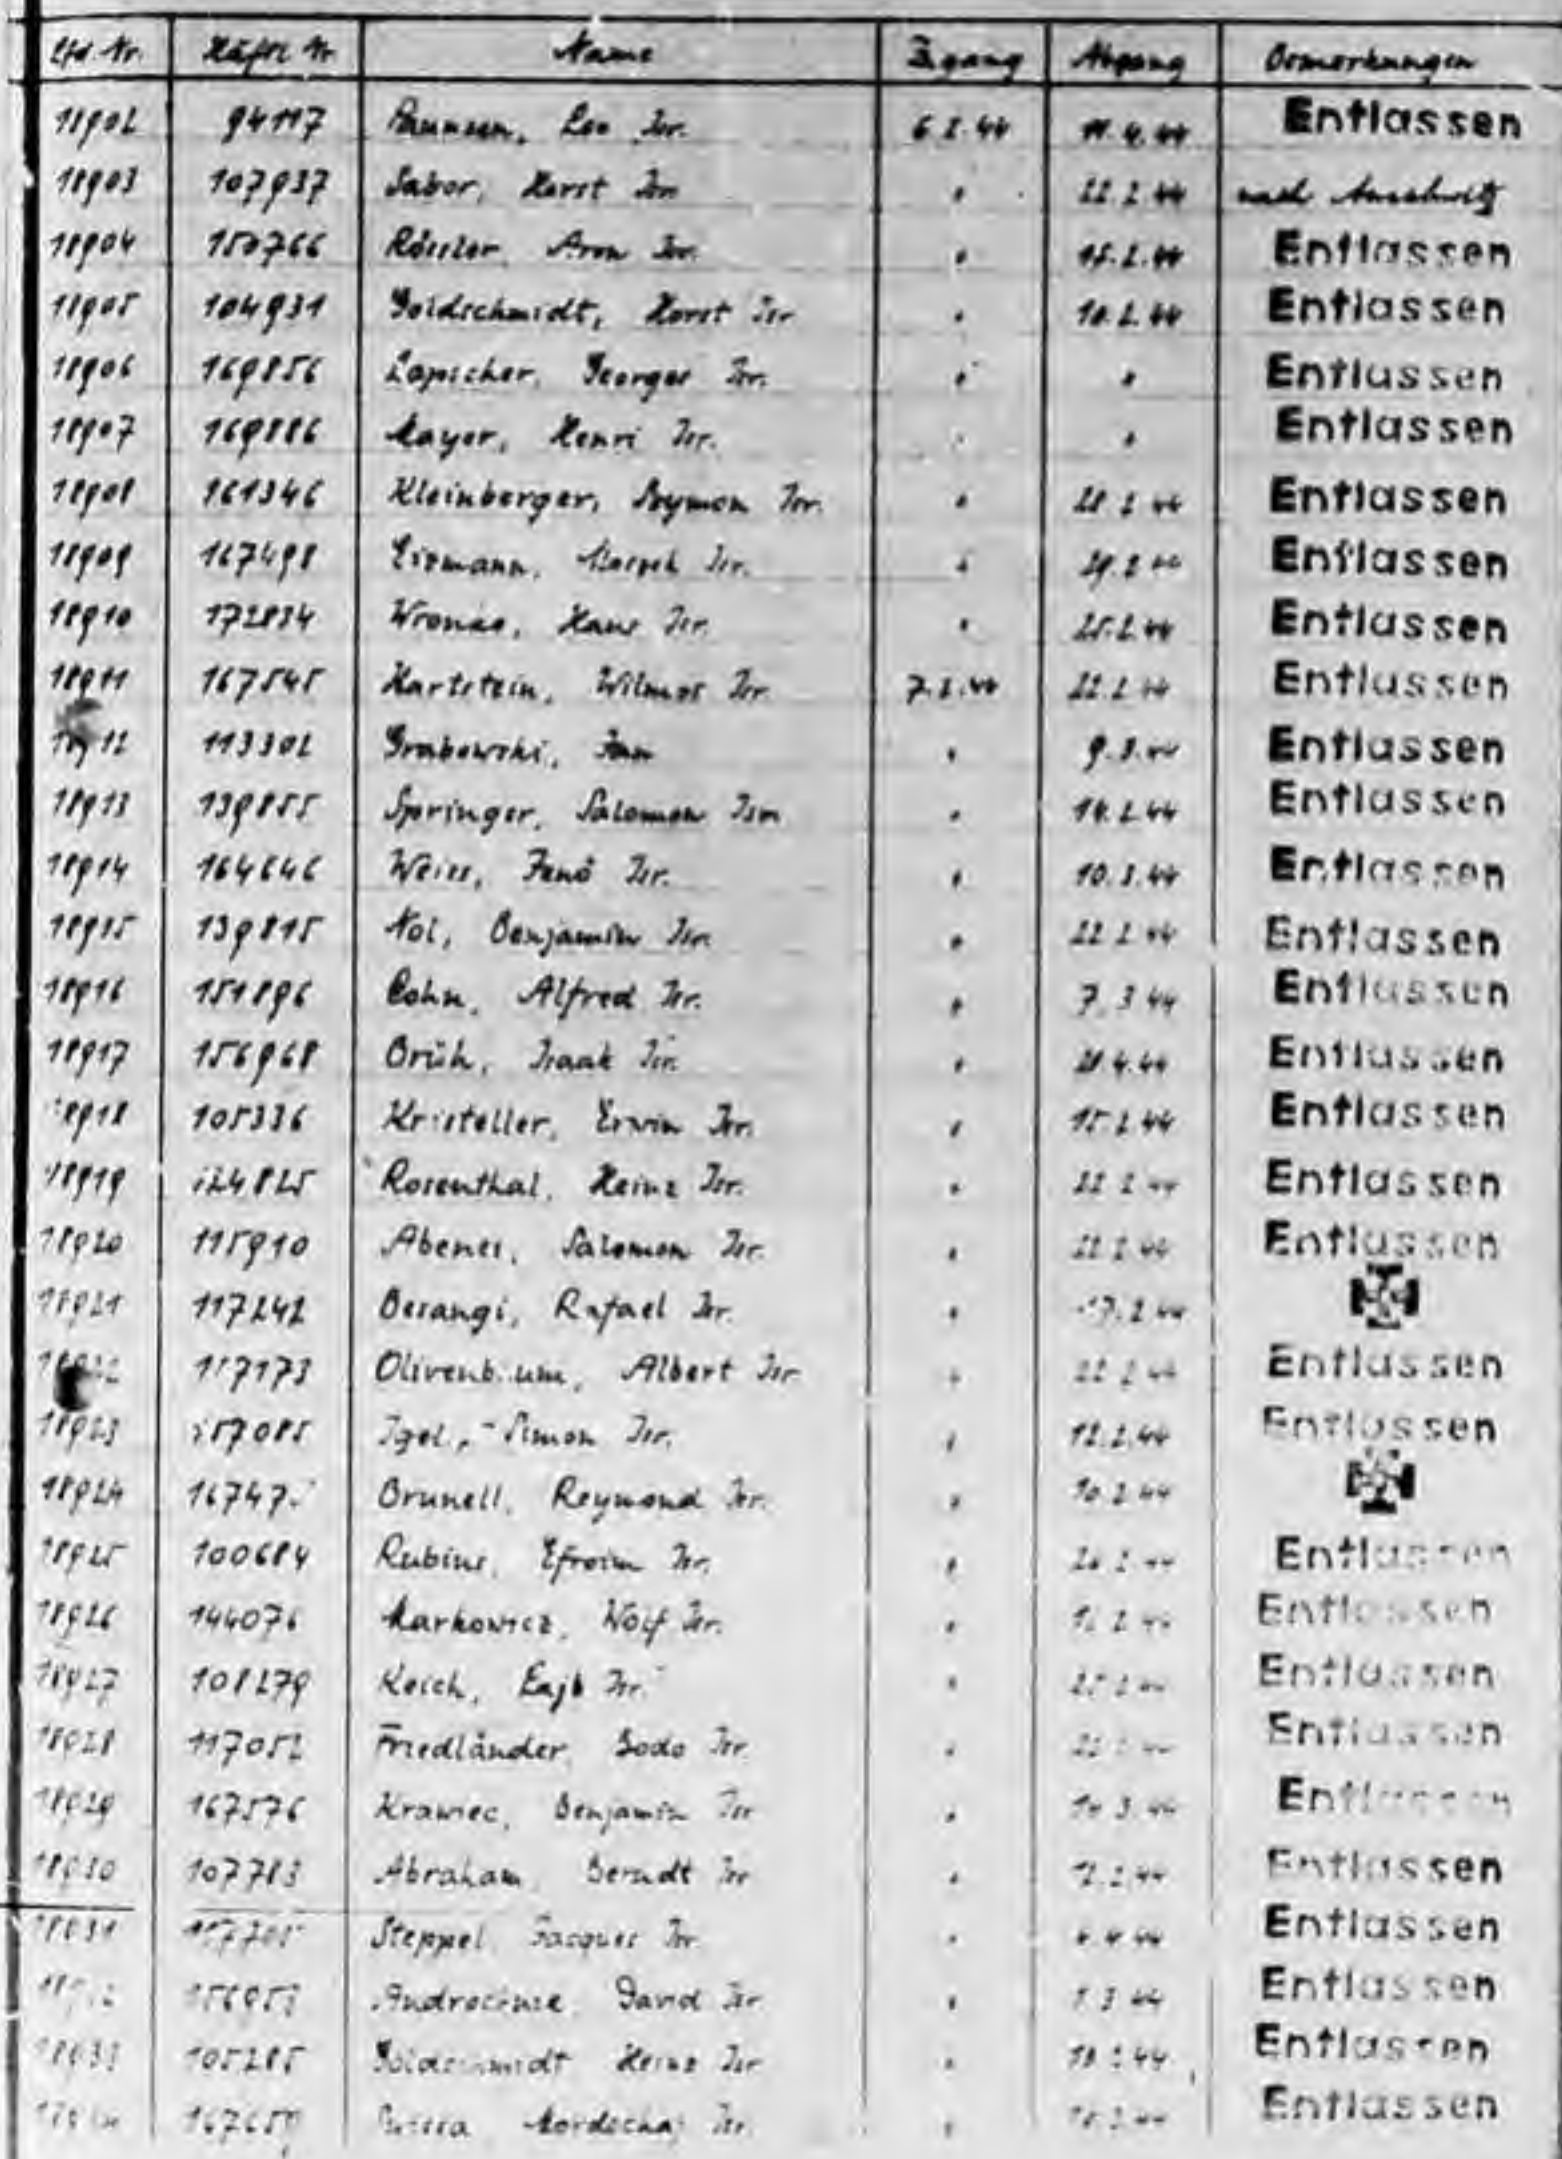 Lfd. Nr. Häftl. Nr. Name Zugang Abgang Bemerkungen
18902 94117 Leo Isr. 6.2.44 11.4.44 Entlassen
18903 107937 Sabor, Horst Isr. " 22.2.44 nach Auschwitz
18904 150766 Rössler, Aron Isr. " 15.2.44 Entlassen
18905 104931 Goldschmidt, Horst Isr " 10.2.44 Entlassen
18906 169856 Lapscher, Georges Isr. " " Entlassen
18907 169886 Mayer, Henri Isr. " " Entlassen
18908 161346 Kleinberger, Szymon Isr. " 28.2.44 Entlassen
18909 167498 Isr. " 29.2.44 Entlassen
18910 172834 Hans Isr. " 25.2.44 Entlassen
18911 167545 Hartstein, Wilmos Isr. 7.2.44 22.2.44 Entlassen
18912 113302 Grabowski, Jan " 9.3.44 Entlassen
18913 139855 Springer, Salomon Ism " 14.2.44 Entlassen
18914 164646 Weiss, Jenö Isr. " 10.3.44 Entlassen
18915 139815 Nol, Benjamin Isr. " 22.2.44 Entlassen
18916 151896 Cohn, Alfred Isr. " 7.3.44 Entlassen
18917 156968 Brüh, Isaak Isr. " 21.4.44 Entlassen
18918 105336 Kristeller, Erwin Isr. " 15.2.44 Entlassen
18919 124825 Rosenthal, Heinz Isr. " 22.2.44 Entlassen
18920 115910 Abenes, Salomon Isr. " 22.2.44 Entlassen
18921 117242 Besangi, Rafael Isr. " 17.2.44
117173 Olivenbaum, Albert Isr " 22.2.44 Entlassen
18923 157085 Igel, Simon Isr. " 12.2.44 Entlassen
18924 Brunell, Reymond Isr. " 10.2.44
18925 100684 Rubins, Efroim Isr. " Entlassen
18926 144076 Markowicz, Wolf Isr. " Entlassen
18927 108279 Reich, Isr. " Entlassen
18928 117052 Friedländer, Bodo Isr. " Entlassen
18929 167576 Krawiec, Benjamin Isr " Entlassen
18930 107783 Abraham, Berndt Isr " Entlassen
18931 Steppel, Jacques Isr. " Entlassen
David Isr " Entlassen
18933 105285 Goldschmidt Heinz Isr " Entlassen
Mordechaj Isr. " Entlassen